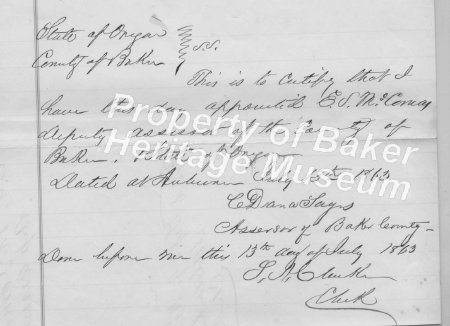 State of Oregon
County of Baker } S.S.
This is to certify that I
have this day appointed E.S. McComas
deputy assessor of the County of
Baker. State of Oregon
Dated at Auburn July 13th 1863
C Dana Sayrs
Assessor of Baker County
Done before me this 13th day of July 1863
Clerk
Property of Baker
Heritage Museum